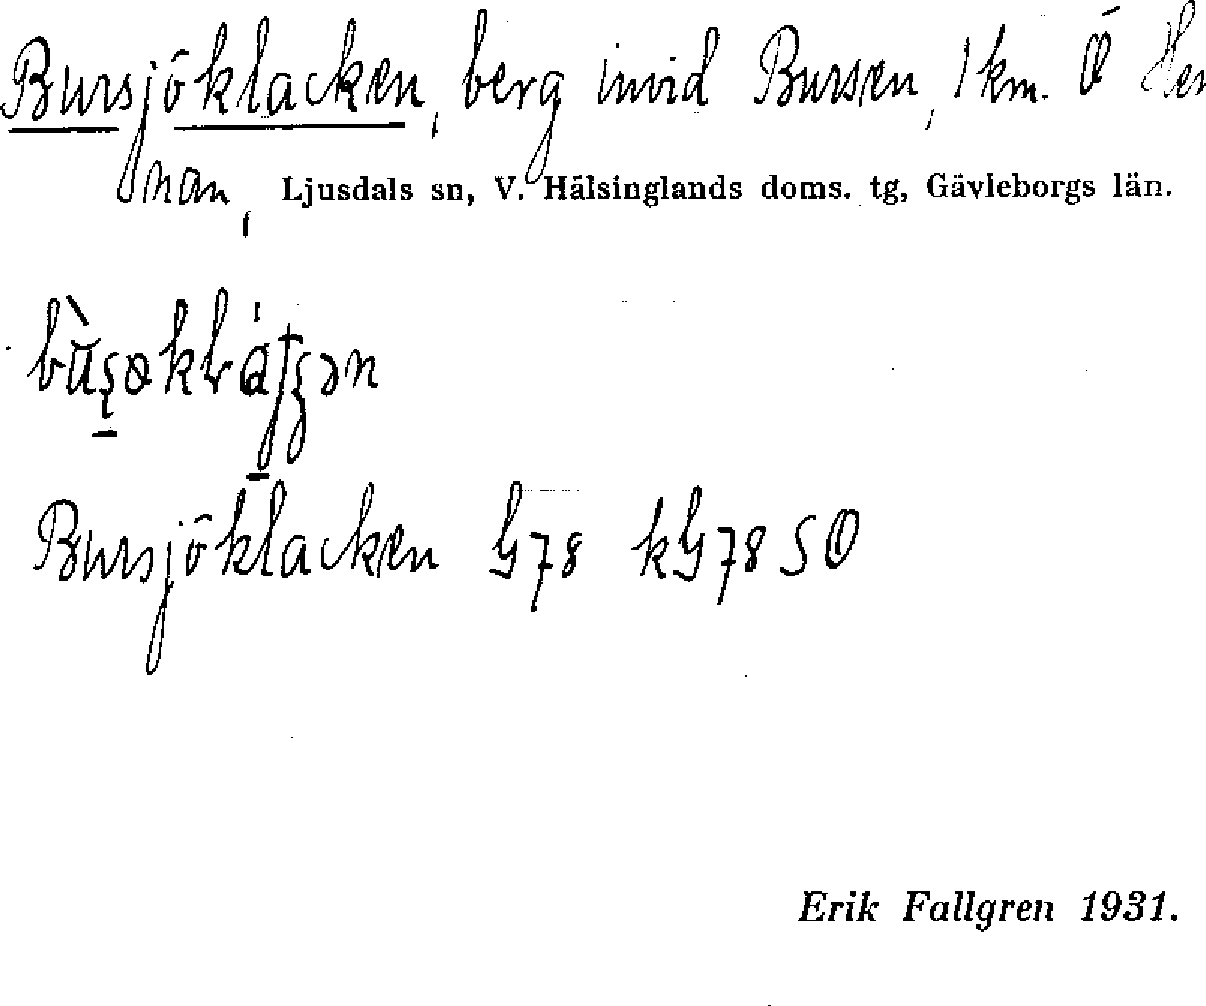 Bursjöklacken, berg invid Bursen, 1 km. Ö Hen
nan, Ljusdals sn, V. Hälsinglands doms. tg, Gävleborgs län.
Bursjöklacken G78 kG78 SO
Erik Fallgren 1931.